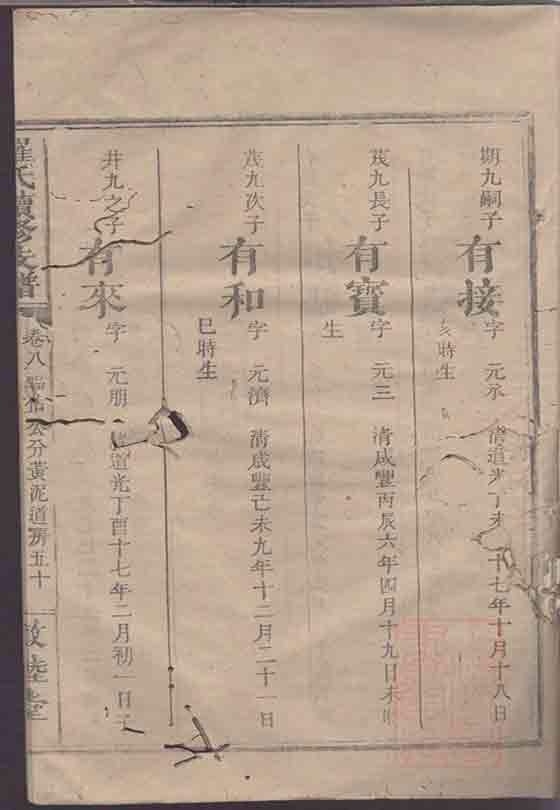 期九嗣子
有接
字 元承 清道光丁未 十七年十月十八日
亥時生
茂九長子
有寶
字 元三 清咸豐丙辰六年四月十九日未時
生
茂九次子
有和
字 元濟 清咸豐己未九年十二月二十一日
巳時生
井九之子
有來
字 元朋 清道光丁酉十七年二月初一日
羅氏續修支譜
卷八 公分黃泥道房五十
敦睦堂